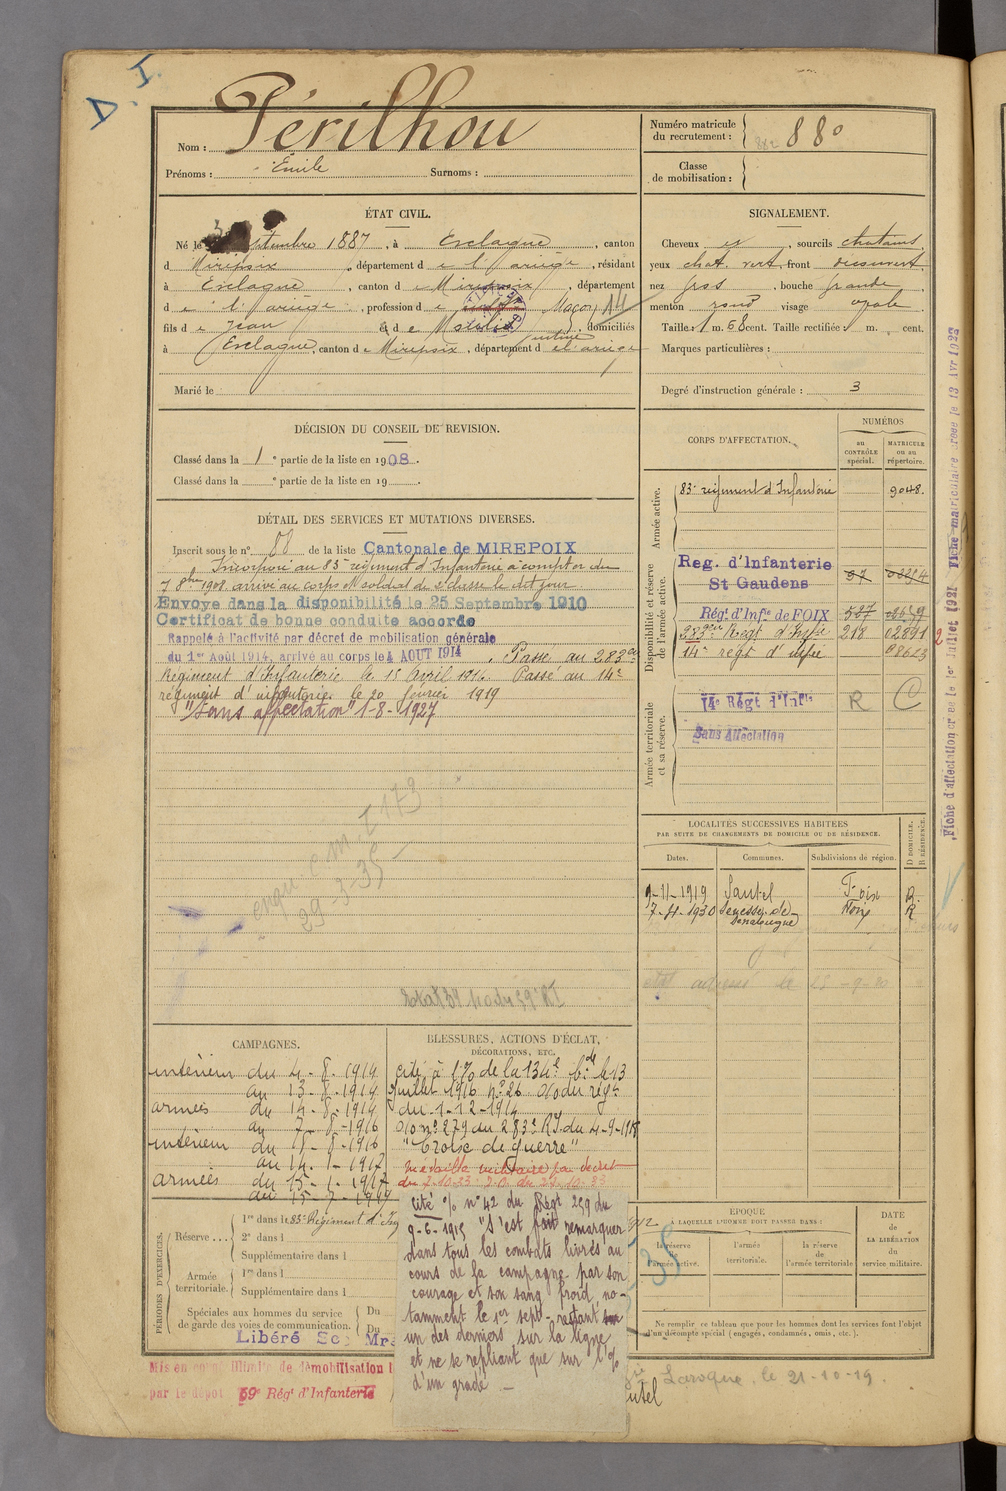 D. I.
Nom : Périlhou
Prénoms : Emile Surnoms :
Numéro matricule
du recrutement : 880
Classe
de mobilisation :
ÉTAT CIVIL.
Né le septembre 1887, à Esclagne, canton
d Mirepoix, département de l'Ariège, résidant
à Esclagne, canton de Mirepoix, département
de l'Ariège, profession de Maçon 14
fils de Jean et de domiciliés
à Esclagne, canton de Mirepoix, département de l'ariège
Marié le
SIGNALEMENT.
Cheveux et, sourcils chatains,
yeux chat. vert, front découvert,
nez gros, bouche grande,
menton rond visage ovale
Taille : 1 m. 68 cent. Taille rectifiée m. cent.
Marques particulières :
Degré d'instruction générale : 3
DÉCISION DU CONSEIL DE REVISION.
Classé dans la 1e partie de la liste en 1908.
Classé dans la e partie de la liste en 19 .
DÉTAIL DES SERVICES ET MUTATIONS DIVERSES.
Inscrit sous le n° 88 de la liste Cantonale de MIREPOIX
Incorporé au 83e régiment d'Infanterie à compter du
7 8bre 1908. arrivé au corps et soldat de 2e classe le dit jour
Envoyé dans la disponibilité le 25 Septembre 1910
Certificat de bonne conduite accordé
Rappelé à l'activité par décret de mobilisation générale
du 1er Août 1914, arrivé au corps le 4 AOUT 1914. Passé au 283e
Régiment d'Infanterie le 15 Avril 1916. Passé au 14e
régiment d'infanterie le 20 février 1919
"Sans affectation" 1-8-1927
29-3-35
CORPS D'AFFECTATION.
NUMÉROS
au
CONTRÔLE
spécial.
MATRICULE
ou au
répertoire.
Armée active.
83e régiment d'Infanterie 9048.
Disponibilité et réserve
de l'armée active.
Reg. d'Infanterie
St Gaudens
Régt d'Infie de FOIX 527
283ème Régt d'Infie 218 02891
14e régt d'infie 08623
Armée territoriale
et sa réserve.
14e Régt d'Infie R C
Sans Affectation
Fiche d'affectation créée le 1er Juillet 1921 Fiche matriculaire créée le 13 Avr 1923
LOCALITÉS SUCCESSIVES HABITÉES
PAR SUITE DE CHANGEMENTS DE DOMICILE OU DE RÉSIDENCE.
Dates. Communes. Subdivisions de région. D DOMICILE. R RÉSIDENCE.
9-11-1919 Sautel Foix R.
7-4-1930 Senesse-de-Senabugue Foix R
adressé le 25-9-30
CAMPAGNES.
intérieur du 4-8-1914
au 13-8-1914
armées du 14-8-1914
au 7-8-1916
intérieur du 8-8-1916
au 14-1-1917
armées du 15-1-1917
au 15-7-1919
BLESSURES, ACTIONS D'ÉCLAT,
DÉCORATIONS, ETC.
cité à l'% de la 134e bde le 13
Juillet 1916 n° 26. % du régt
du 1-12-1914
% n° 279 du 283e RI. du 4-9-1918
"Croix de guerre"
Médaille militaire par décret
du 7.10.33. J.O. du 22.10.33
cité % n° 42 du Régt 259 du
9-6-1915 "S'est fait remarquer
dans tous les combats livrés au
cours de la campagne par son
courage et son sang froid, no-
tamment le 1er sept - restant
un des derniers sur la ligne
et ne se repliant que sur l'%
d'un gradé —
PÉRIODES D'EXERCICES.
Réserve ... 1re dans le 83e Régiment d'Inf
2e dans l
Supplémentaire dans l
Armée
territoriale. 1re dans l
Supplémentaire dans l
Spéciales aux hommes du service
de garde des voies de communication. Du
Du
Libéré
ÉPOQUE
À LAQUELLE L'HOMME DOIT PASSER DANS :
la réserve
de
l'armée active.
l'armée
territoriale.
la réserve
de
l'armée territoriale
DATE
de
LA LIBÉRATION
du
service militaire.
35
Ne remplir ce tableau que pour les hommes dont les services font l'objet
d'un décompte spécial (engagés, condamnés, omis, etc.).
Mis en congé illimité de démobilisation
par le dépôt 59e Régt d'Infanterie
Laroque, le 21-10-19.
utel